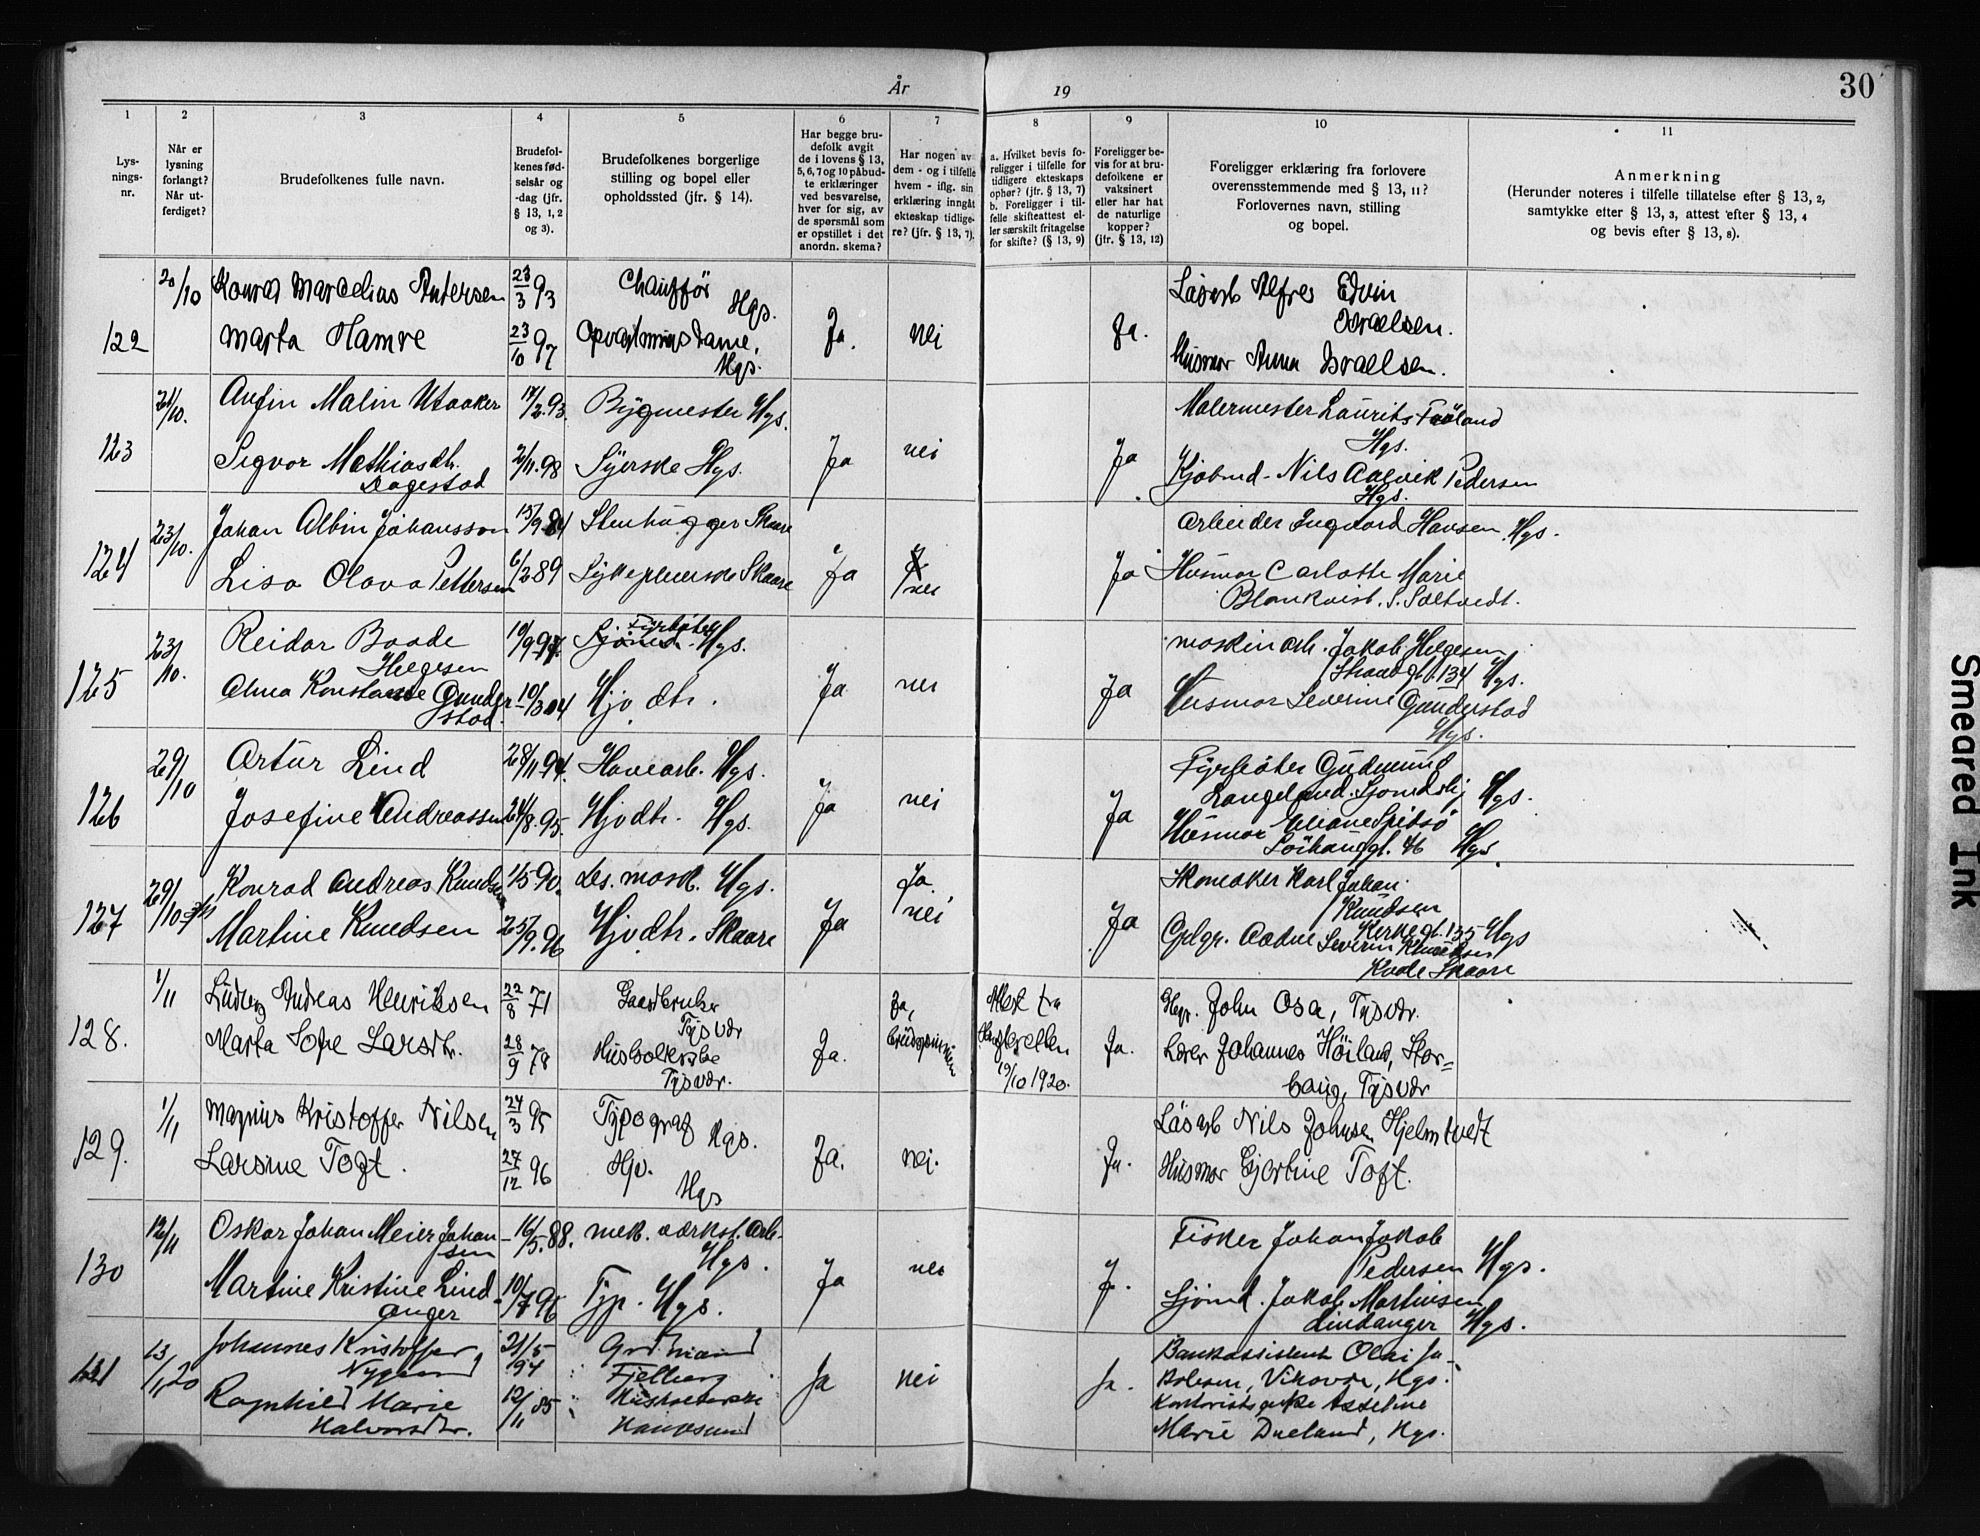 År
19
30
1
2
3
4
5
6
7
8
9
10
11
Lys-
nings-
nr.
Når er
lysning
forlangt?
Når ut-
ferdiget?
Brudefolkenes fulle navn.
Brudefol-
kenes fød-
selsår og
-dag (jfr.
§ 13, 1, 2
og 3).
Brudefolkenes borgerlige
stilling og bopel eller
opholdssted (jfr. § 14).
Har begge bru-
defolk avgit
de i lovens § 13,
5, 6, 7 og 10 påbud-
te erklæringer
ved besvarelse,
hver for sig, av
de spørsmål som
er opstillet i det
anordn. skema?
Har nogen av
dem - og i tilfelle
hvem - iflg. sin
erklæring inngåt
ekteskap tidlige-
re? (jfr. § 13, 7).
a. Hvilket bevis fo-
religger i tilfelle for
tidligere ekteskaps
ophør? (jfr. § 13, 7)
b. Foreligger i til-
felle skifteattest el-
ler særskilt fritagelse
for skifte? (§ 13, 9)
Foreligger be-
vis for at bru-
defolkene er
vaksinert
eller har hat
de naturlige
kopper?
(jfr. § 13, 12)
Foreligger erklæring fra forlovere
overensstemmende med § 13, 11?
Forlovernes navn, stilling
og bopel.
Anmerkning
(Herunder noteres i tilfelle tillatelse efter § 13, 2,
samtykke efter § 13, 3, attest efter § 13, 4
og bevis efter § 13, 8).
122
20/10
Konrad Marcelius Andersen
23/3 93
Chauffør
Hgs.
Marta Hamre
23/10 97
Opvartningsdame,
Hgs.
Ja.
nei
Ja.
Løsarb Alfred Edvin
Israelsen.
Husmor Anna Israelsen.
123
21/10.
Anfin Malin Utaaker
17/2.93.
Bygmester Hgs.
Sigvor Mathiasdtr.
Dagestad
2/11.98
Syerske Hgs.
Ja
nei
Ja
Malermester Laurits
Hgs.
Kjøbmd. Nils Aalvik Pedersen
Hgs.
124
23/10.
Johan Albin Johansson
15/9 84
Stenhugger Skaare
Lisa Olava Pettersen
6/2 89
Sykepleierske Skaare
Ja
nei
Ja
Arbeider Ingvard Hansen, Hgs.
Husmor Carlotte Marie
Blomkvist. S. Saltvedt.
125
23/10.
Reidar Baade
Helgesen
10/9.97.
Fyrbøter
Sjømd. Hgs.
Alma Konstanse Gunder
stad.
10/3 04
Hjv. dtr.
Ja
nei
Ja
Maskinarb. Jakob Helgesen
Strandgt. 134 Hgs.
Husmor Severine Gunderstad
Hgs.
126
29/10
Artur Lind
28/11.94.
Havearb. Hgs.
Josefine Andreassen
24/8.95.
Hjvdtr. Hgs.
Ja
nei
Ja
Fyrbøter Gudmund
Langeland. Hgs.
Husmor Spitsø
46 Hgs.
127
29/10
Konrad Andreas Knudsen
1/5 90.
Les. mask. Hgs.
Martine Knudsen
25/9.96
Hjvdtr. Skaare
Ja
Ja
nei
Ja
Skomaker Karl Johan
Knudsen
Kirkegt. 135 Hgs
Gplgr. Aadne Severin Knudsen
Kvale Skaare
128.
1/11
Ludvig Andreas Henriksen
22/8 71
Gaardbruker
Tysvær
Marta Sofie Larsdtr.
28/9 78
Husholderske
Tysvær.
Ja.
Ja,
brudgommen
Attest fra
Skifteretten
19/10 1920.
Ja.
Hgr. John Osa, Tysvær.
Lærer Johannes Høiland, Stor-
haug, Tysvær
129.
1/11
Magnus Kristoffer Nilsen
24/3 95
Typograf
Hgs.
Larsine Toft.
27/12 96
Hjv.
Hgs
Ja.
nei.
Ja.
Løsarb Nils Johnsen Hjelmtvedt
Husmor Gjertine Toft.
130
12/11
Oskar Johan Meier Johan
sen
16/5.88.
mek. værkst. Arb.
Hgs.
Martine Kristine Lind
anger
10/7 96
Typ. Hgs.
Ja
nei
J.
Fisker Johan Jakob
Pedersen Hgs.
Sjømd. Jakob Martinsen
Lindanger Hgs.
131
13/11 20
Johannes Kristoffer
21/5 94
Grdmand
Fjelberg
Ragnhild Marie
Halvorsdtr.
12/11 85
Husholderske
Haugesund
Ja
nei
Ja.
Bankassistent
Hgs.
Marie Dueland, Hgs.
Smeared Ink